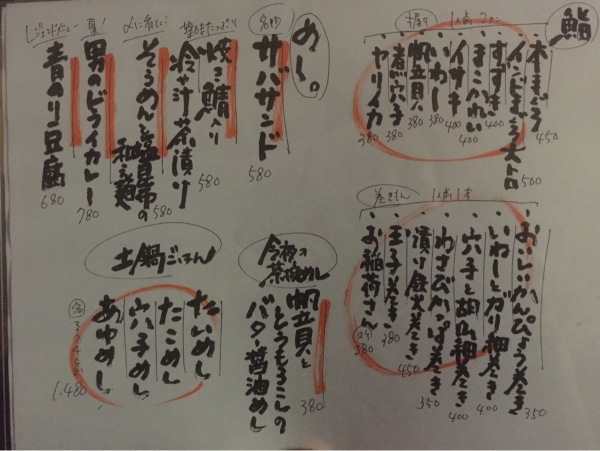 鮨
握り 1人前2カン
本まぐろ 450
インドまぐろ大トロ 500
すずき 400
まこかれい 400
イサキ 400
いわし 380
帆立貝 380
煮穴子 380
ヤリイカ 380
巻きもん 1人前1本
おいしいかんぴょう巻き 350
いわしとガリ細巻き 400
穴子と胡瓜細巻き 400
わさびかっぱ巻き 350
漬け鉄火巻き 450
玉子巻き 380
お稲荷さん 380
めし。
名物
サバサンド 580
焼き鯖入り
冷や汁茶漬け 580
〆に者に!
そうめんと昆布の和え麺 580
夏!
男のドライカレー 780
レジェンドメニュー
青のり豆腐 680
今夜の茶碗めし
帆立貝ととうもろこしの
バター醤油めし 380
土鍋ごはん
たいめし
たこめし
穴子めし
あゆめし
1.480